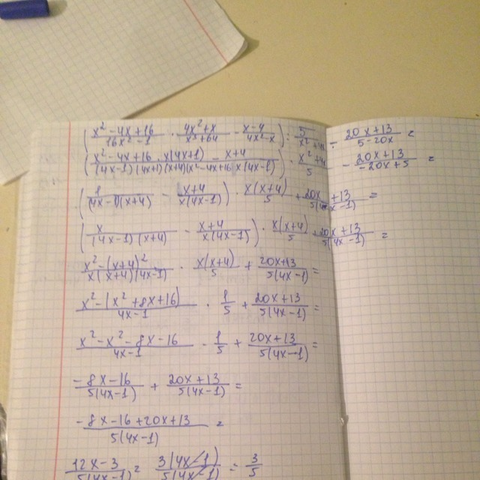 (x²-4x+16/16x²-1 · 4x²+x/x³+64 - x-4/4x²-x) : 5/x²+4x - 20x+13/5-20x =
(x²-4x+16 · x(4x+1)/(4x-1)(4x+1)(x+4)(x²-4x+16) - x+4/x(4x-1)) · x²+4x/5 - 20x+13/-20x+5 =
(1/(4x-1)(x+4) - x+4/x(4x-1)) · x(x+4)/5 + 20x+13/5(4x-1) =
(x/(4x-1)(x+4) - x+4/x(4x-1)) · x(x+4)/5 + 20x+13/5(4x-1) =
x²-(x+4)²/x(x+4)(4x-1) · x(x+4)/5 + 20x+13/5(4x-1) =
x²-(x²+8x+16)/4x-1 · 1/5 + 20x+13/5(4x-1) =
x²-x²-8x-16/4x-1 · 1/5 + 20x+13/5(4x-1) =
-8x-16/5(4x-1) + 20x+13/5(4x-1) =
-8x-16+20x+13/5(4x-1) =
12x-3/5(4x-1) = 3(4x-1)/5(4x-1) = 3/5